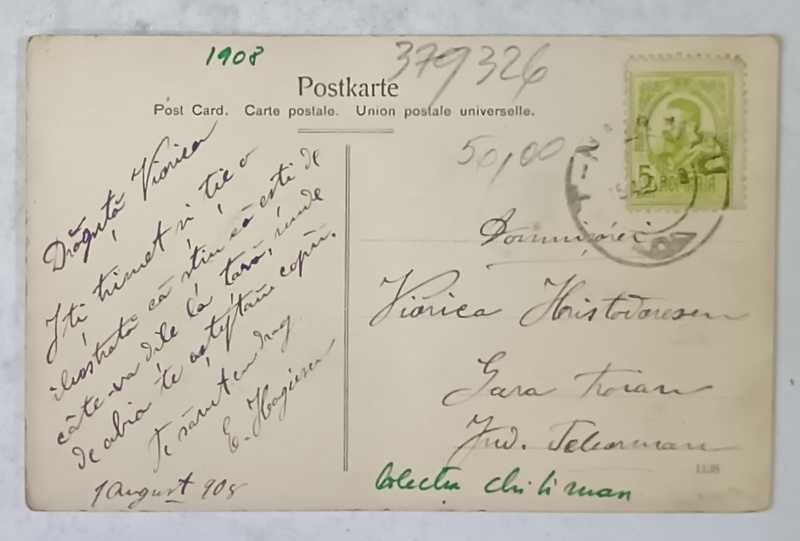 1908
379326
Postkarte
Post Card. Carte postale. Union postale universelle.
50,00
5
ROMANIA
Drăguță Viorica
Iți trimet și ție o
ilustrată că știu că ești de
câte-va zile la țară, unde
de abia te așteptau copii.
Te sărut cu drag
E. Hagiescu
1 August 908
Domnișoarei
Viorica Hristodorescu
Gara Troian
Jud. Teleorman
1118
Colectia Chiliman